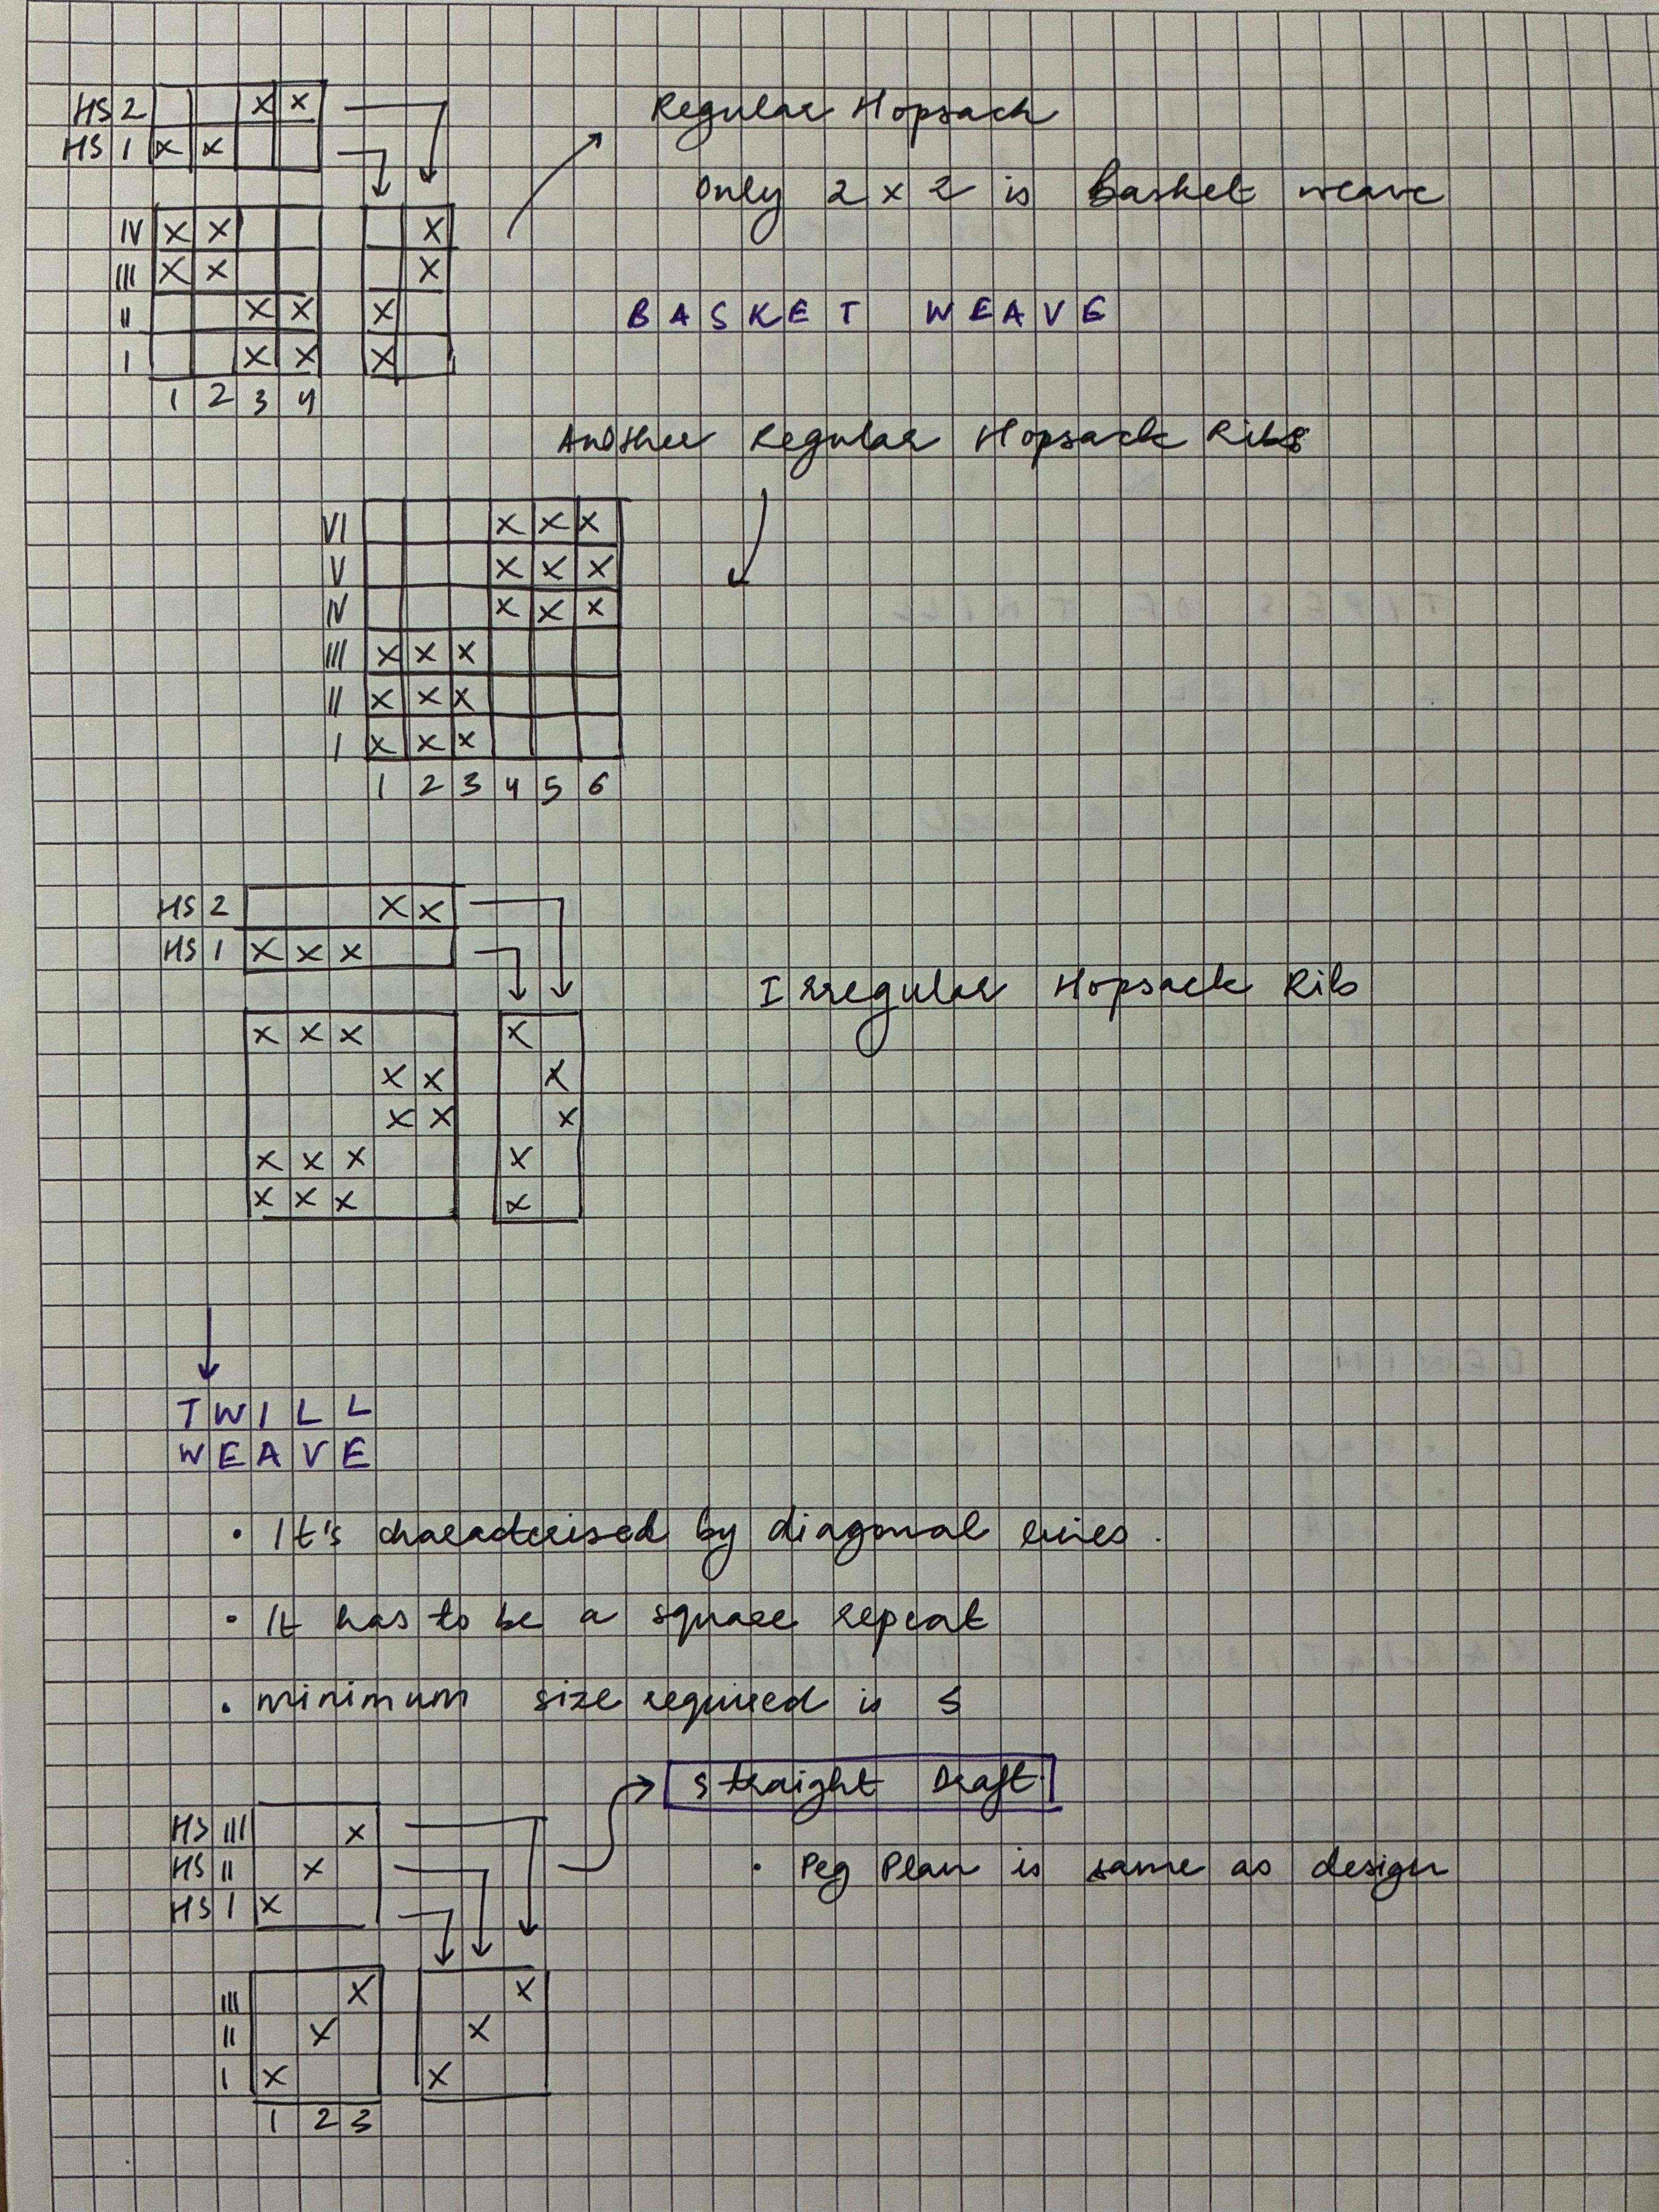 HS 2 X X
HS 1 X X
Regular Hopsack
Only 2 x 2 is Basket weave
IV X X X
III X X X
II X X X
I X X X
1 2 3 4
BASKET WEAVE
Another Regular Hopsack Ribs
VI X X X
V X X X
IV X X X
III X X X
II X X X
I X X X
1 2 3 4 5 6
HS 2 X X
HS 1 X X X
Irregular Hopsack Rib
X X X X
X X X
X X X
X X X X
X X X X
TWILL
WEAVE
• It's characterised by diagonal lines.
• It has to be a square repeat
• minimum size required is 5
Straight Draft
HS III X
HS II X
HS I X
• Peg Plan is same as design
III X X
II X X
I X X
1 2 3